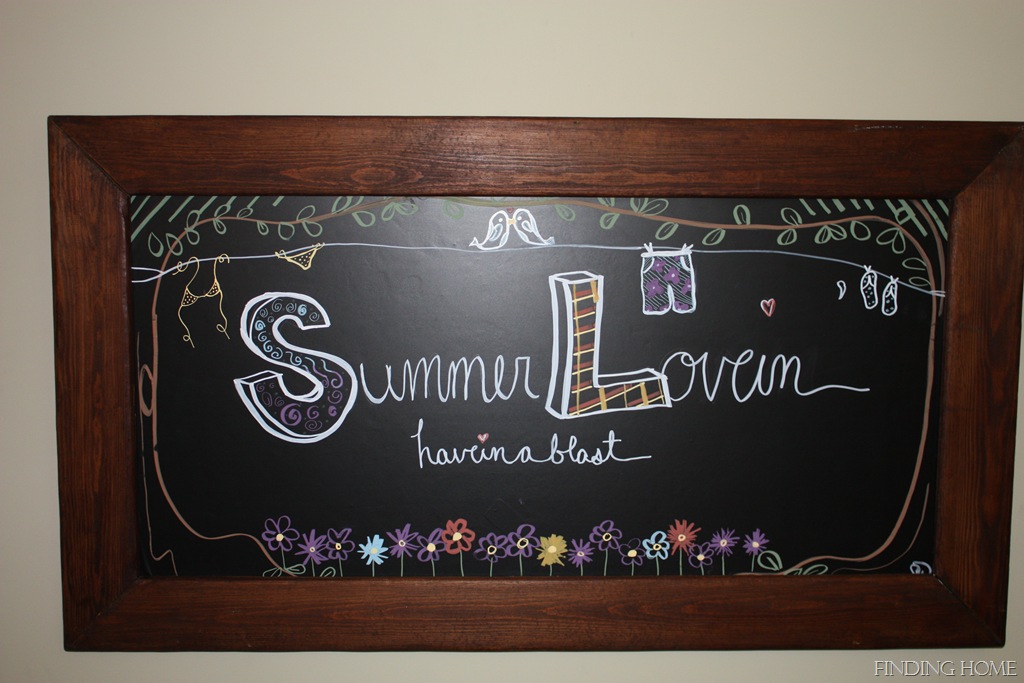 Summer Lovein
havein a blast
FINDING HOME